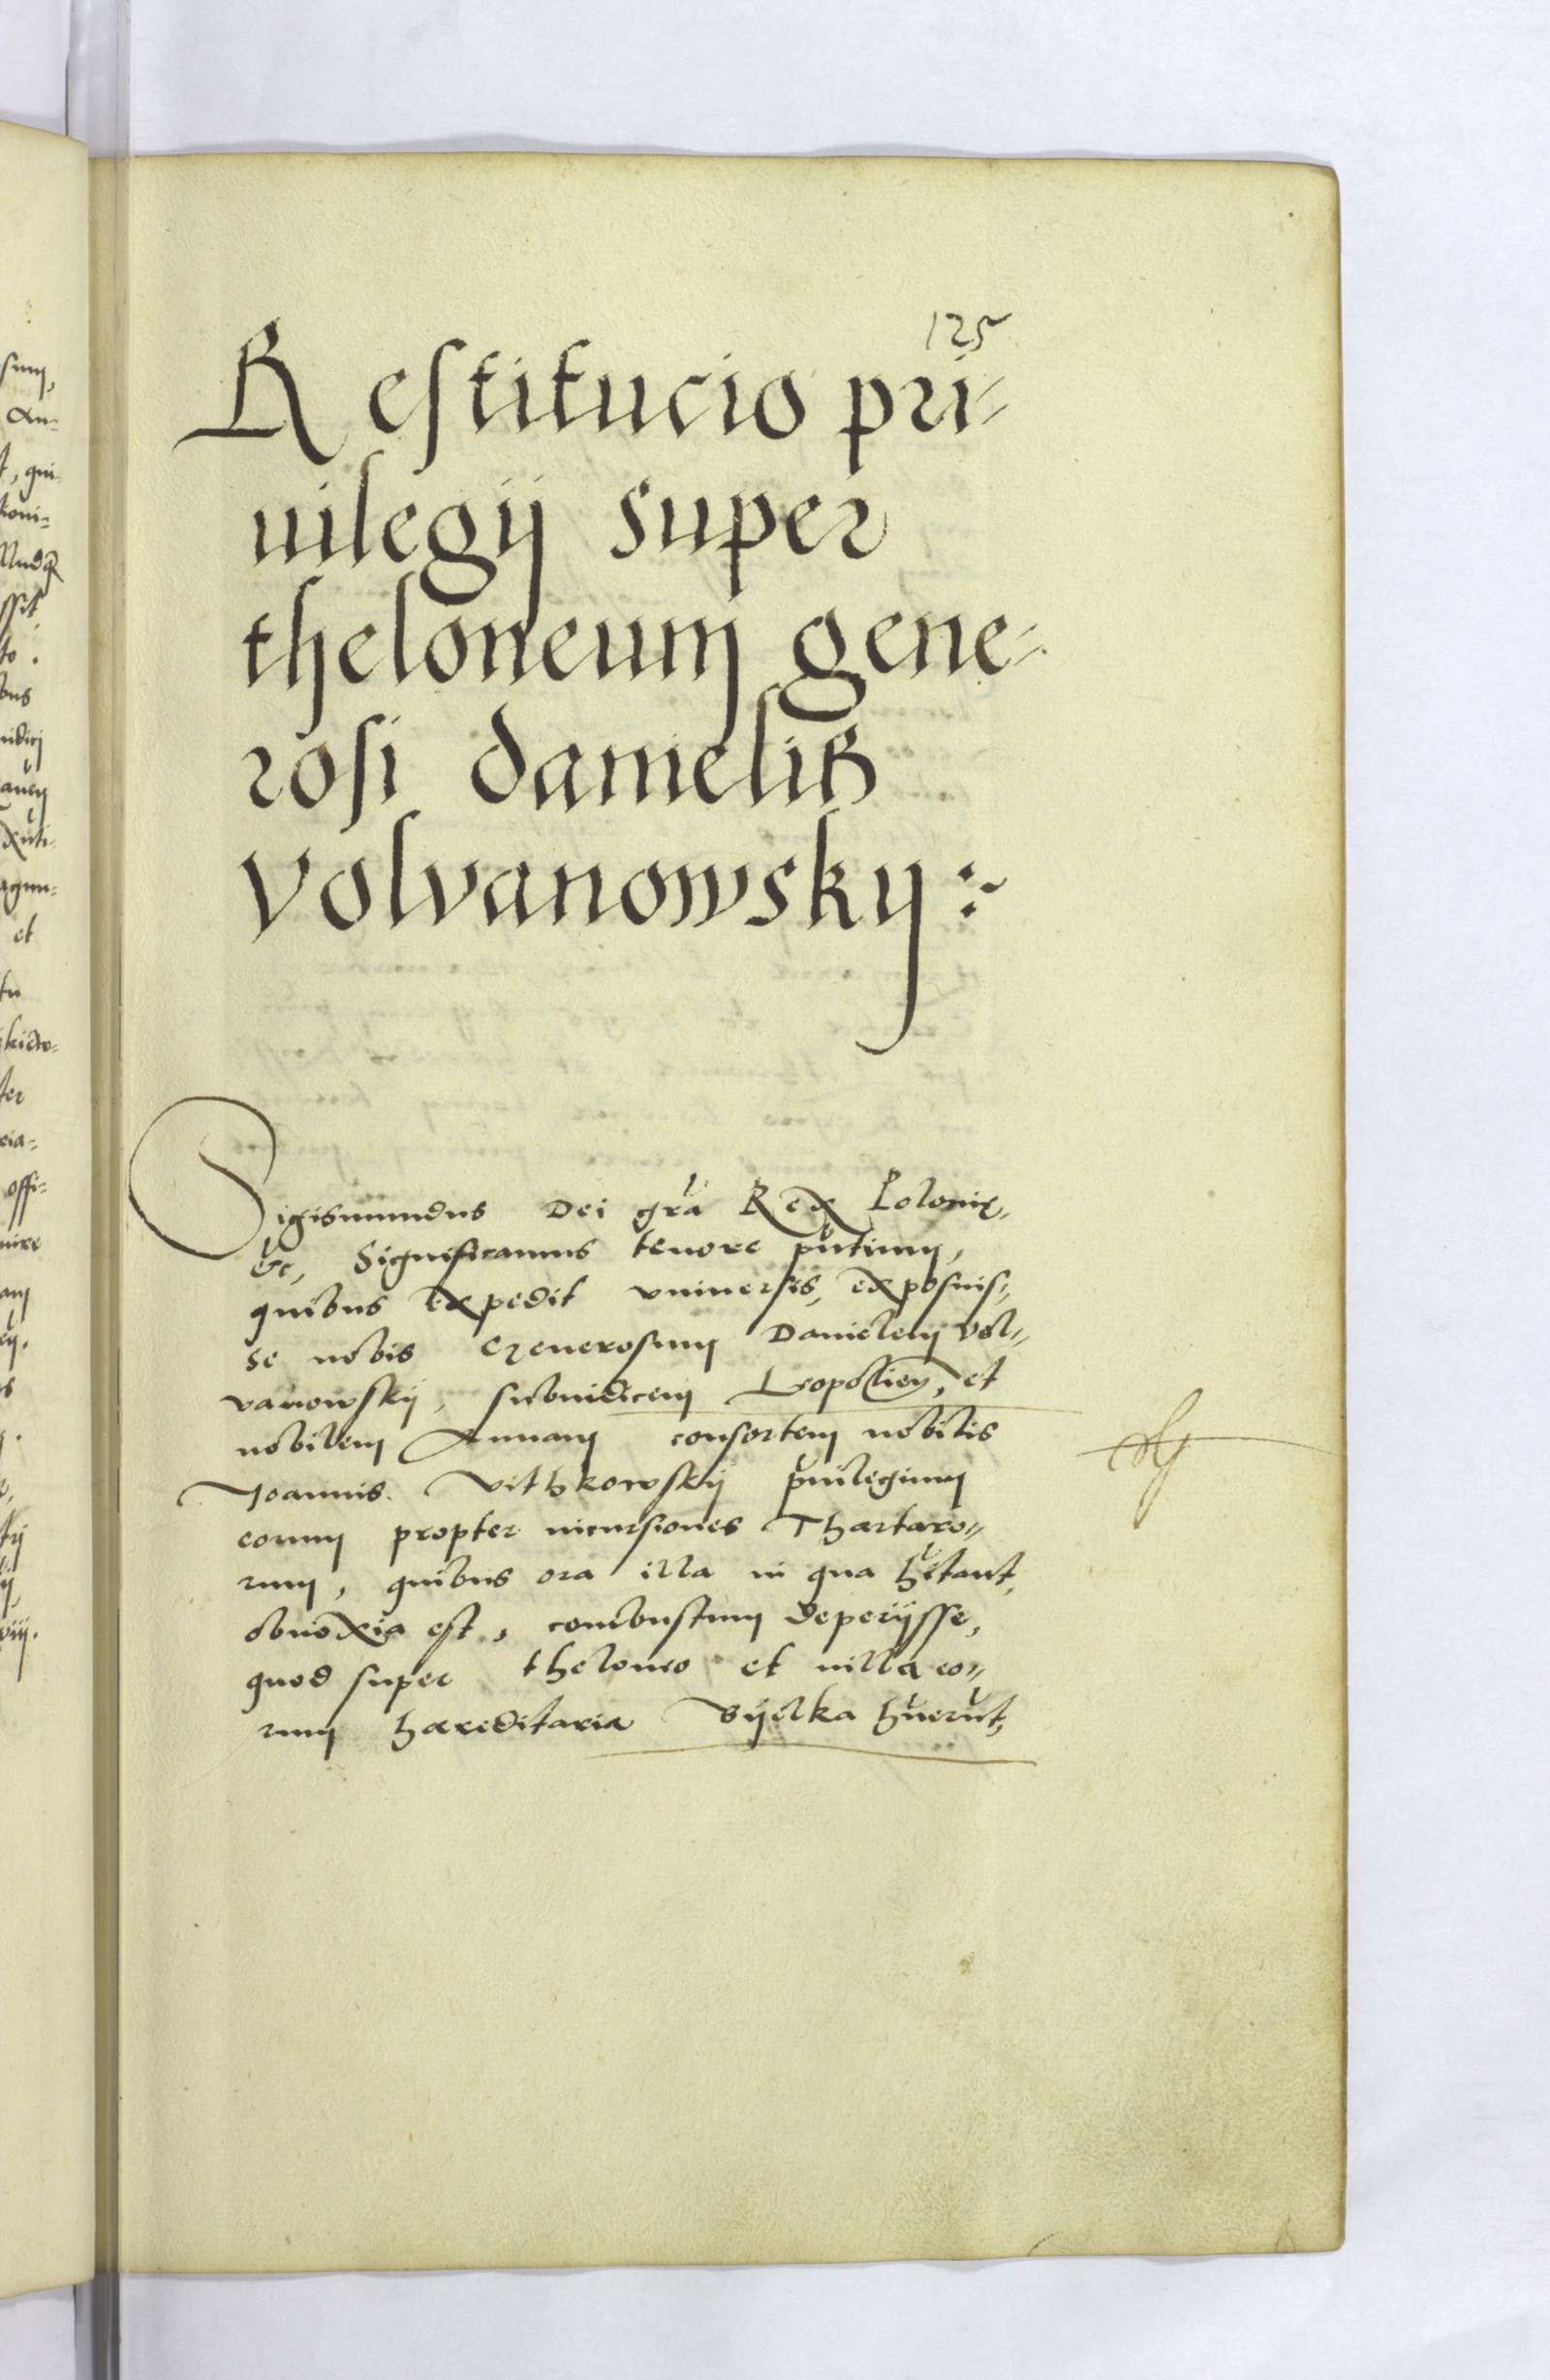 125
Restitucio pri-
uilegij super
theloneum gene-
rosi danielis
volvanowsky
Sigismundus Dei gra Rex Polonię,
&c, Significamus tenore pntium,
quibus expedit vniversis, exposuis-
se nobis Generosum Danielem Vol-
vanowskij, subiudicem Leopolien, et
nobilem Annam consortem nobilis
Joannis Vithkowskij priuilegium
eorum propter incursiones Thartaro-
rum, quibus ora illa in qua hitant,
obnoxia est, combustum deperijsse,
quod super theloneo et villa eo-
rum haereditaria Byelka huerut,